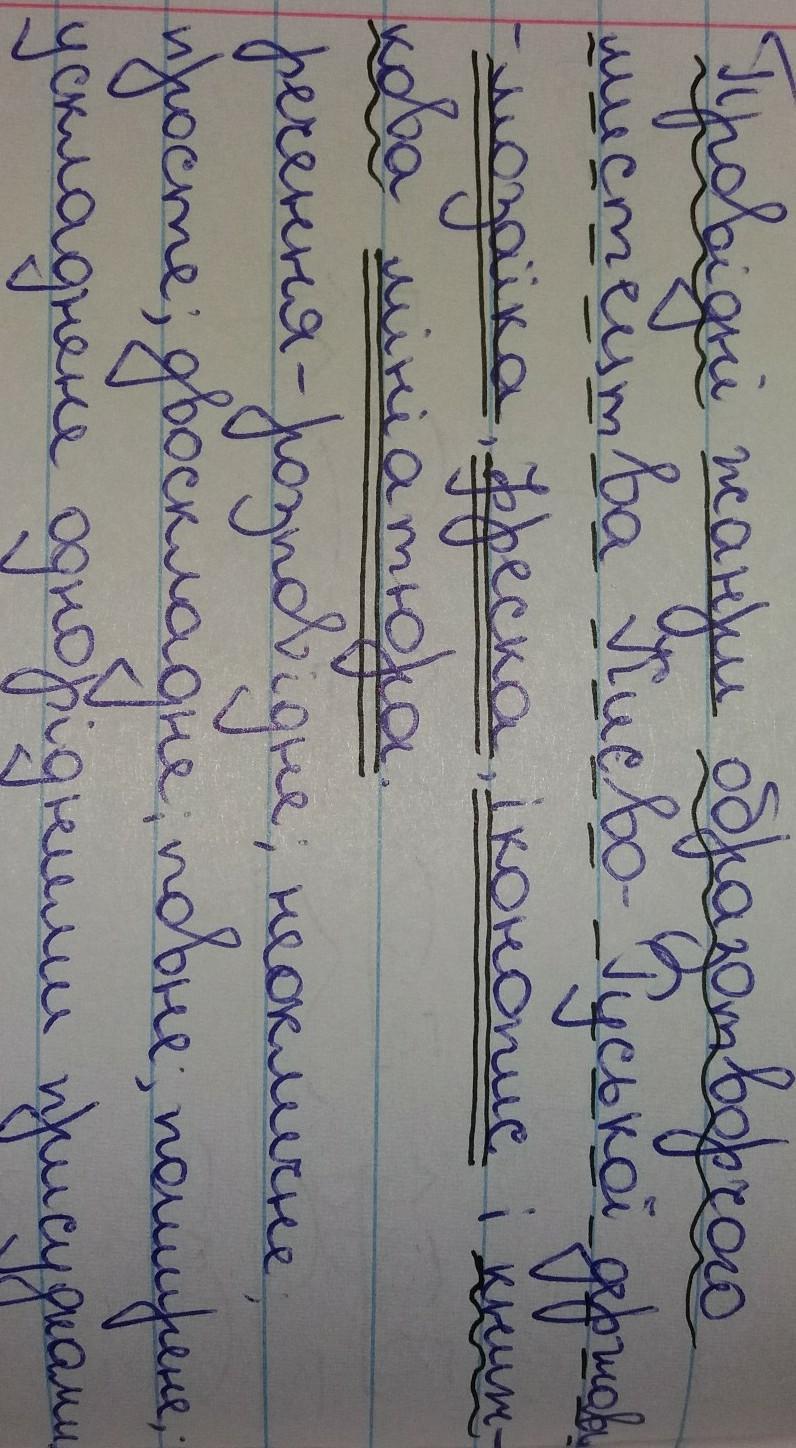 Провідні жанри образотворчого
мистецтва Києво-Руської держави
- мозаїка, фреска, іконопис і книж-
кова мініатюра.
речення - розповідне; неокличне;
просте; двоскладне; повне; поширене;
ускладнене однорідними присудками